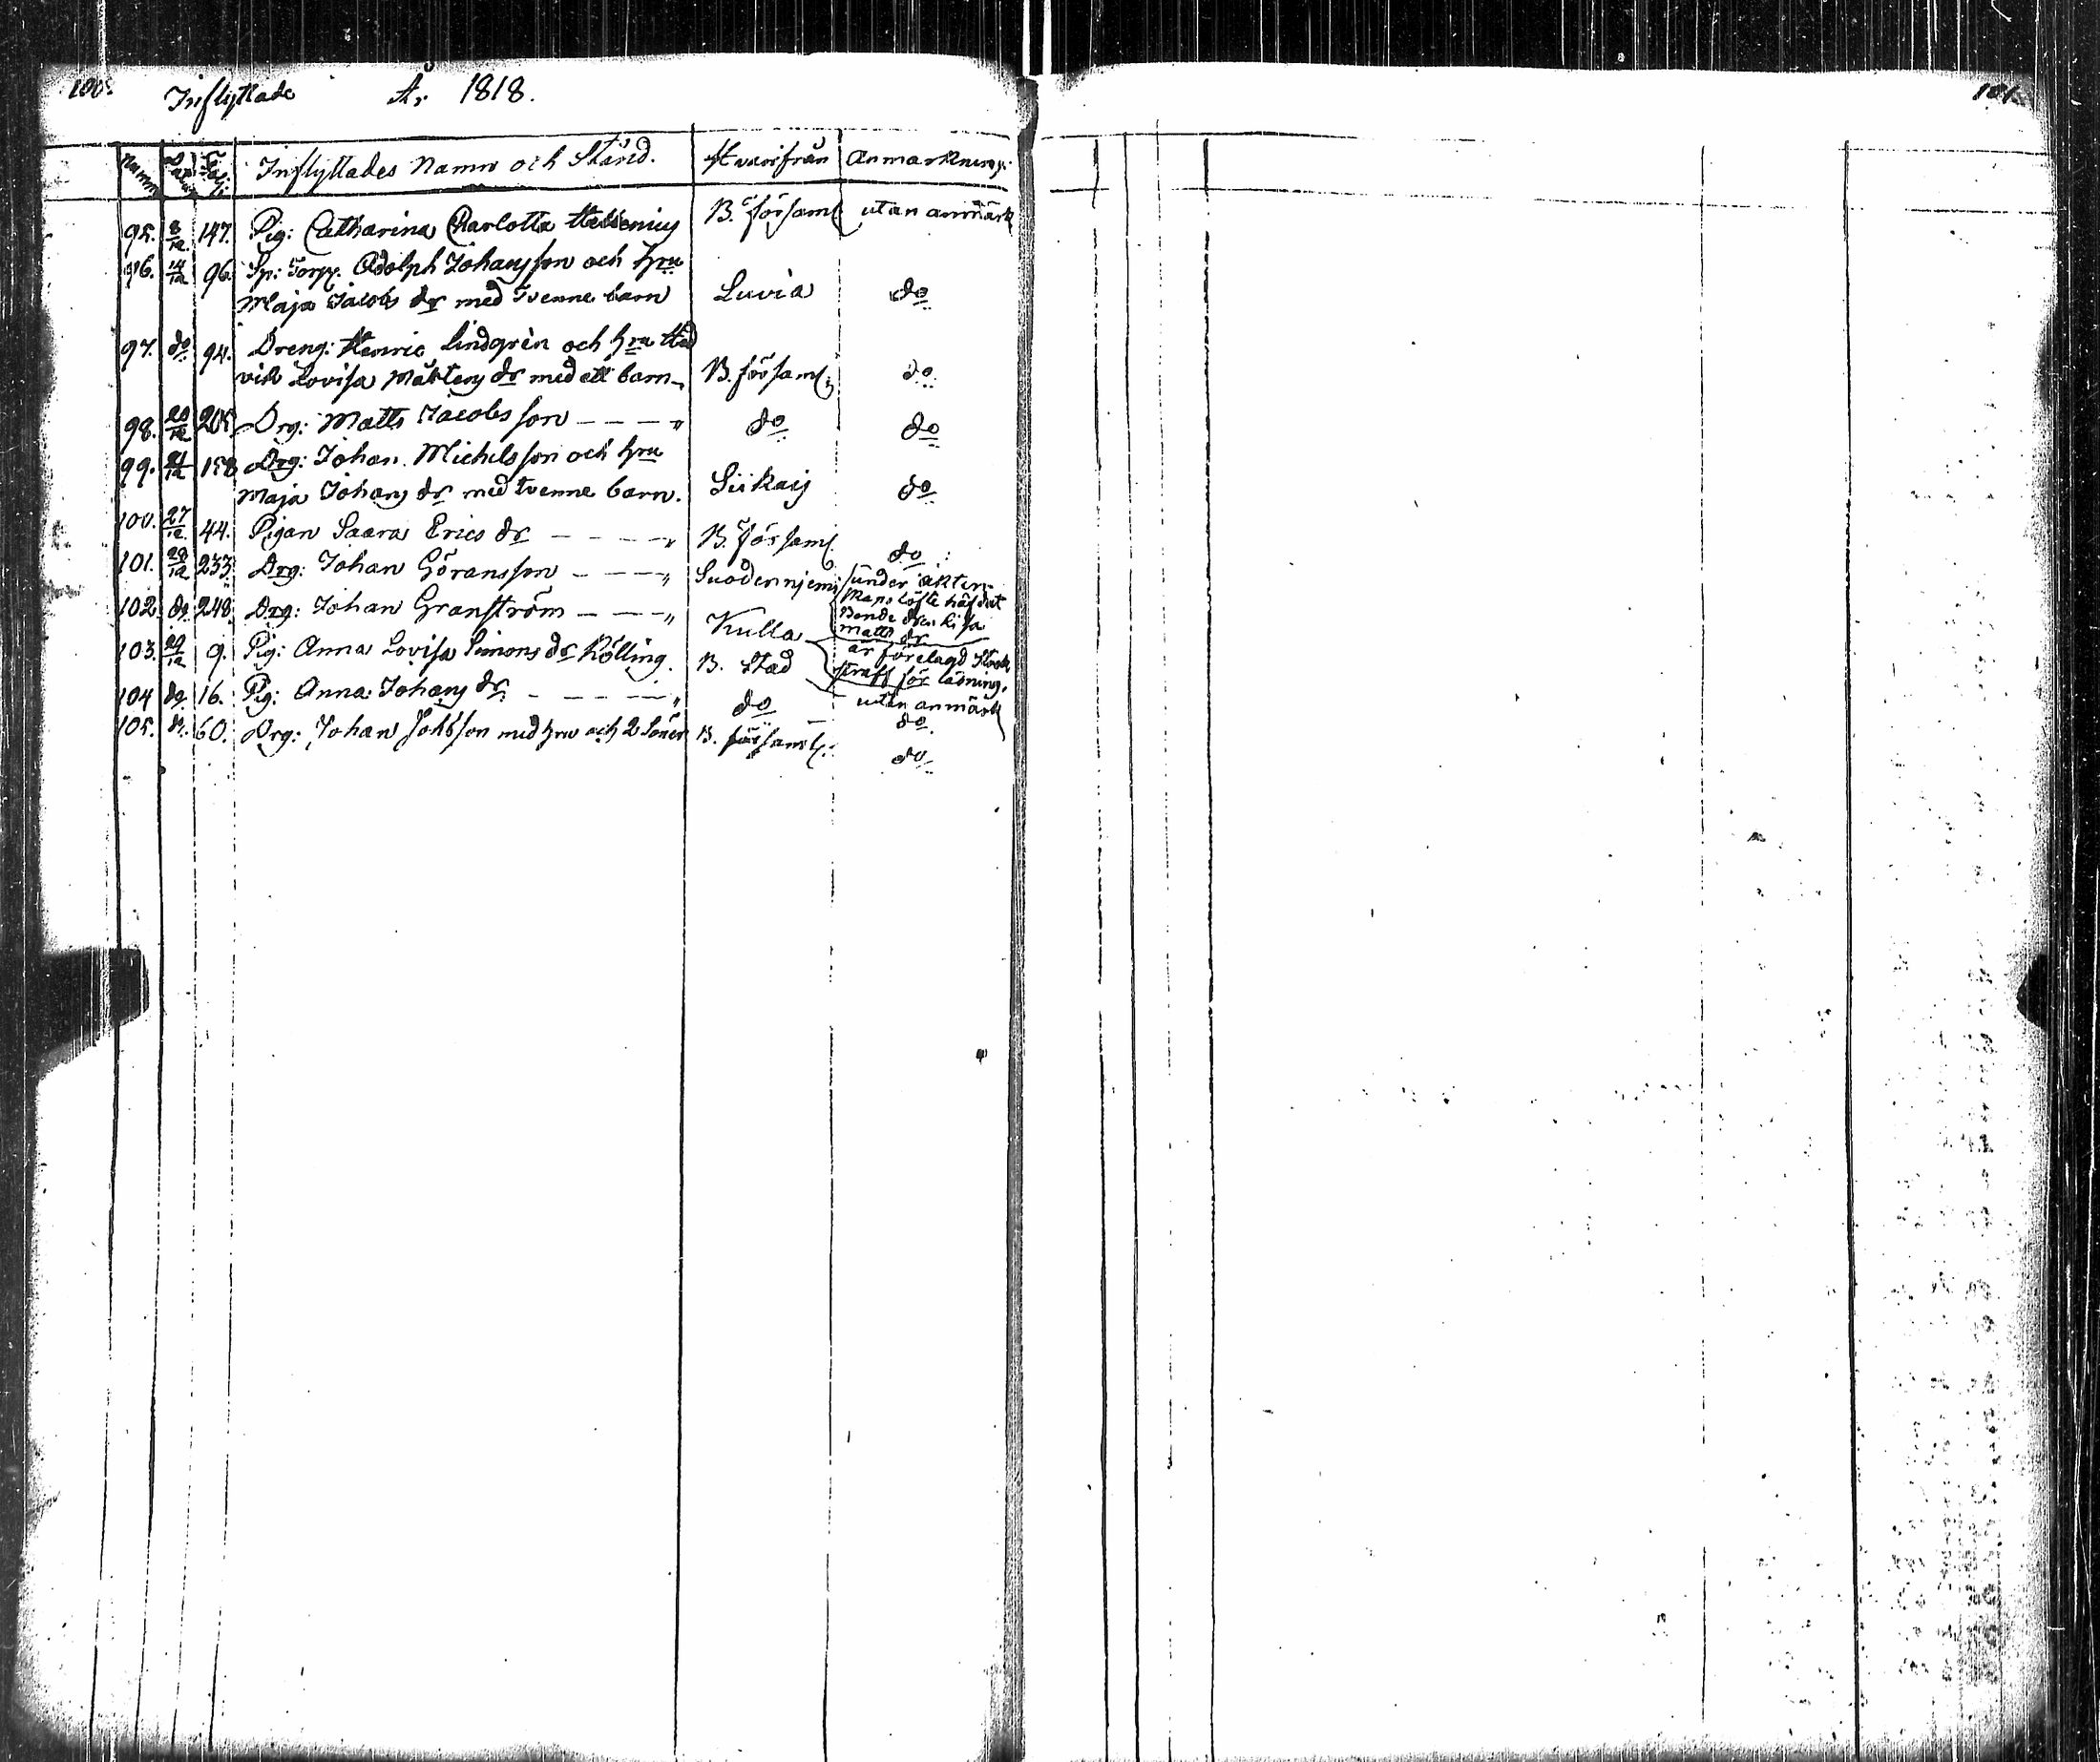 100. Inflyttade År 1818. 101.
Numr. Datum Folj. Inflyttades Namn och Stånd. Hvarifrån Anmärkning:
95. 8/12 147. Pig: Catharina Charlotta B. församl utan anmärk
96. 14/12 96. Sp: Torp. Adolph Johansson och hru
Maja Jacobs dr med tvenne barn Luvia do
97. do 94. Dreng: Henric Lindgrén och hru Hed
vik Lovisa Mårtens dr med ett barn B. församl: do
98. 20/12 205 Drg: Matts Jacobsson – – – – " do do
99. 21/12 158 Drg: Johan Michelsson och hru
Maja Johans dr med tvenne barn. Siikais do
100. 27/12 44. Pigan Saara Erics dr – – – – " B. församl. do
101. 28/12 233. Drg: Johan Göransson – – – – " Suodenniemi under äkten-
skaps löfte häfdat
Bonde dren Lisa
Matts dr
102. do. 248. Drg: Johan Granström – – – " Kulla är förelagd Stock
straff för läsning.
103. 29/12 9. Pig: Anna Lovisa Simons dr Kölling. B. Stad utan anmärk
104 do. 16. Pig: Anna Johans dr. – – – – " do do.
105. do. 60. Drg: Johan Johsson med hru och 2 Söner B. församl: do